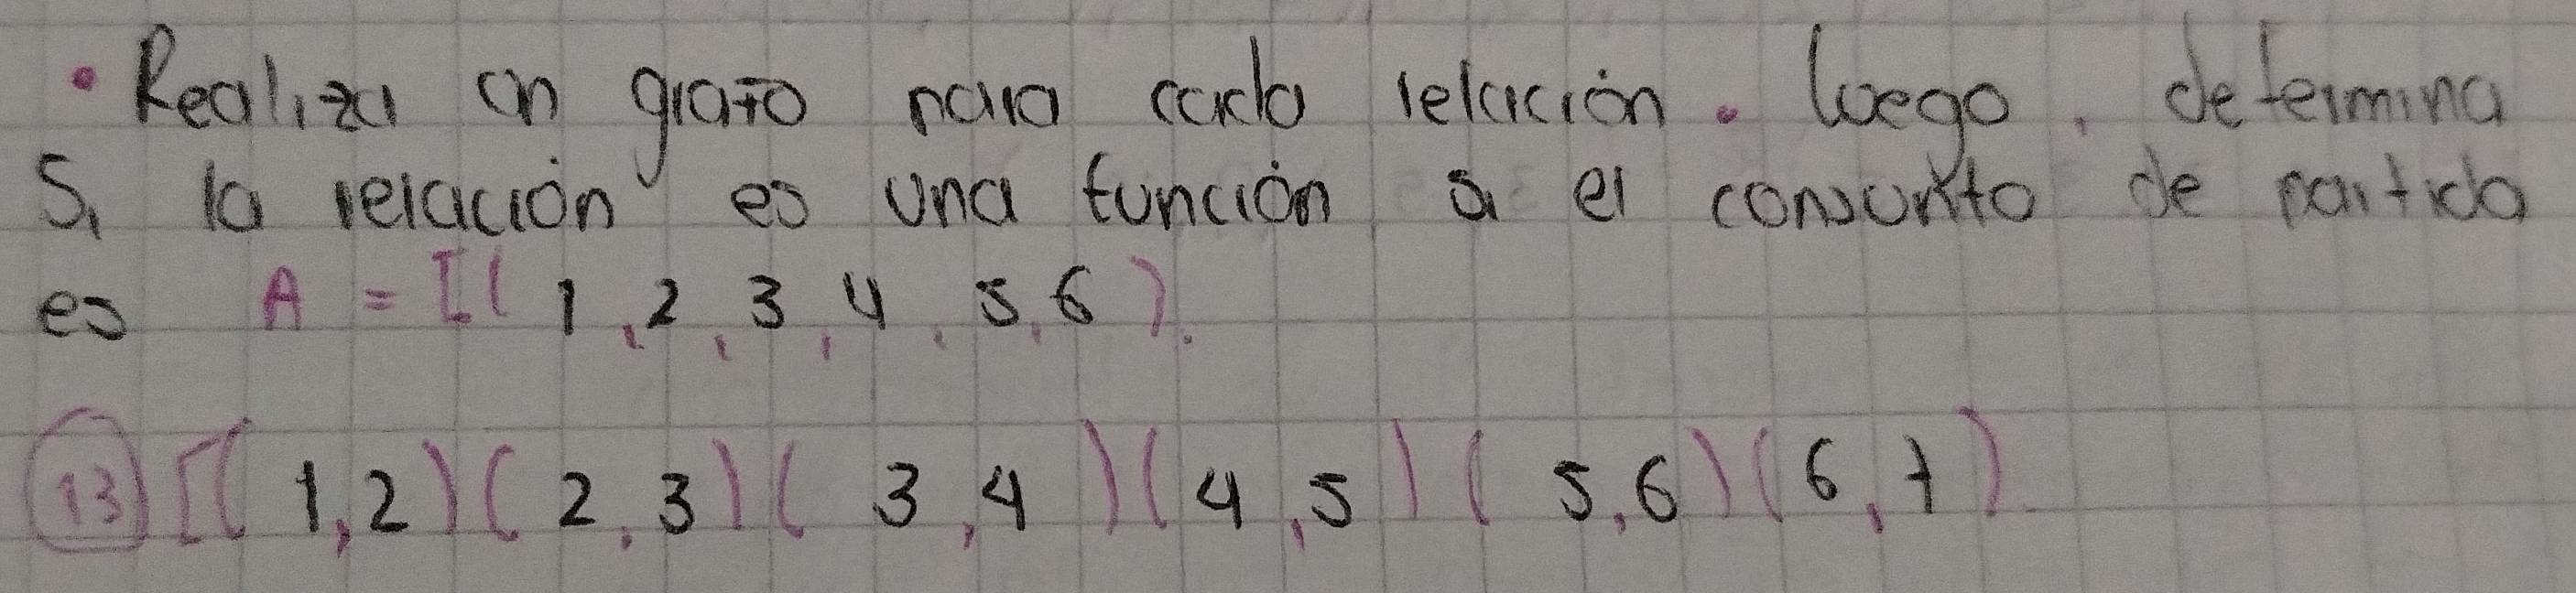 • Realiza un grafo para cada relación. luego, determina
Si la relación es una función si el conjunto de partida
es A = [( 1, 2, 3, 4, 5, 6 ).
13) [( 1, 2 ) ( 2, 3 ) ( 3, 4 ) ( 4, 5 ) ( 5, 6 ) ( 6, 7 ).